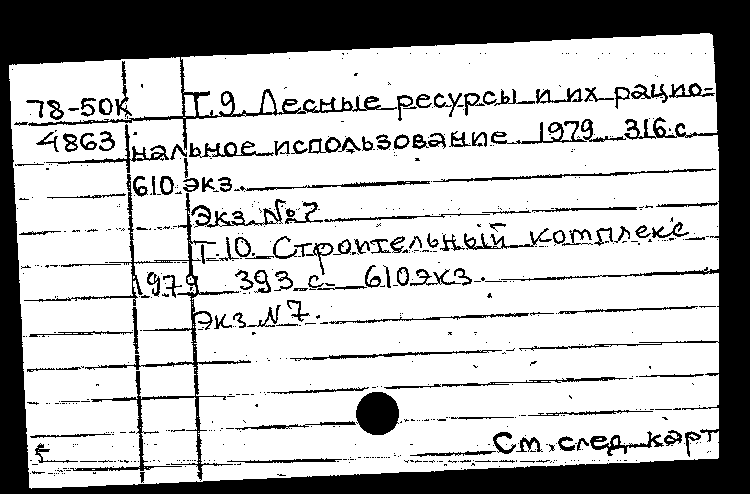 78-50К Т.9. Лесные ресурсы и их рацио=
4863 нальное использование. 1979. 316.с.
610 экз.
Экз. №7
Т.10. Строительный комплекс
1979 393 с. 610экз.
Экз. N 7.
5 См. след. карт